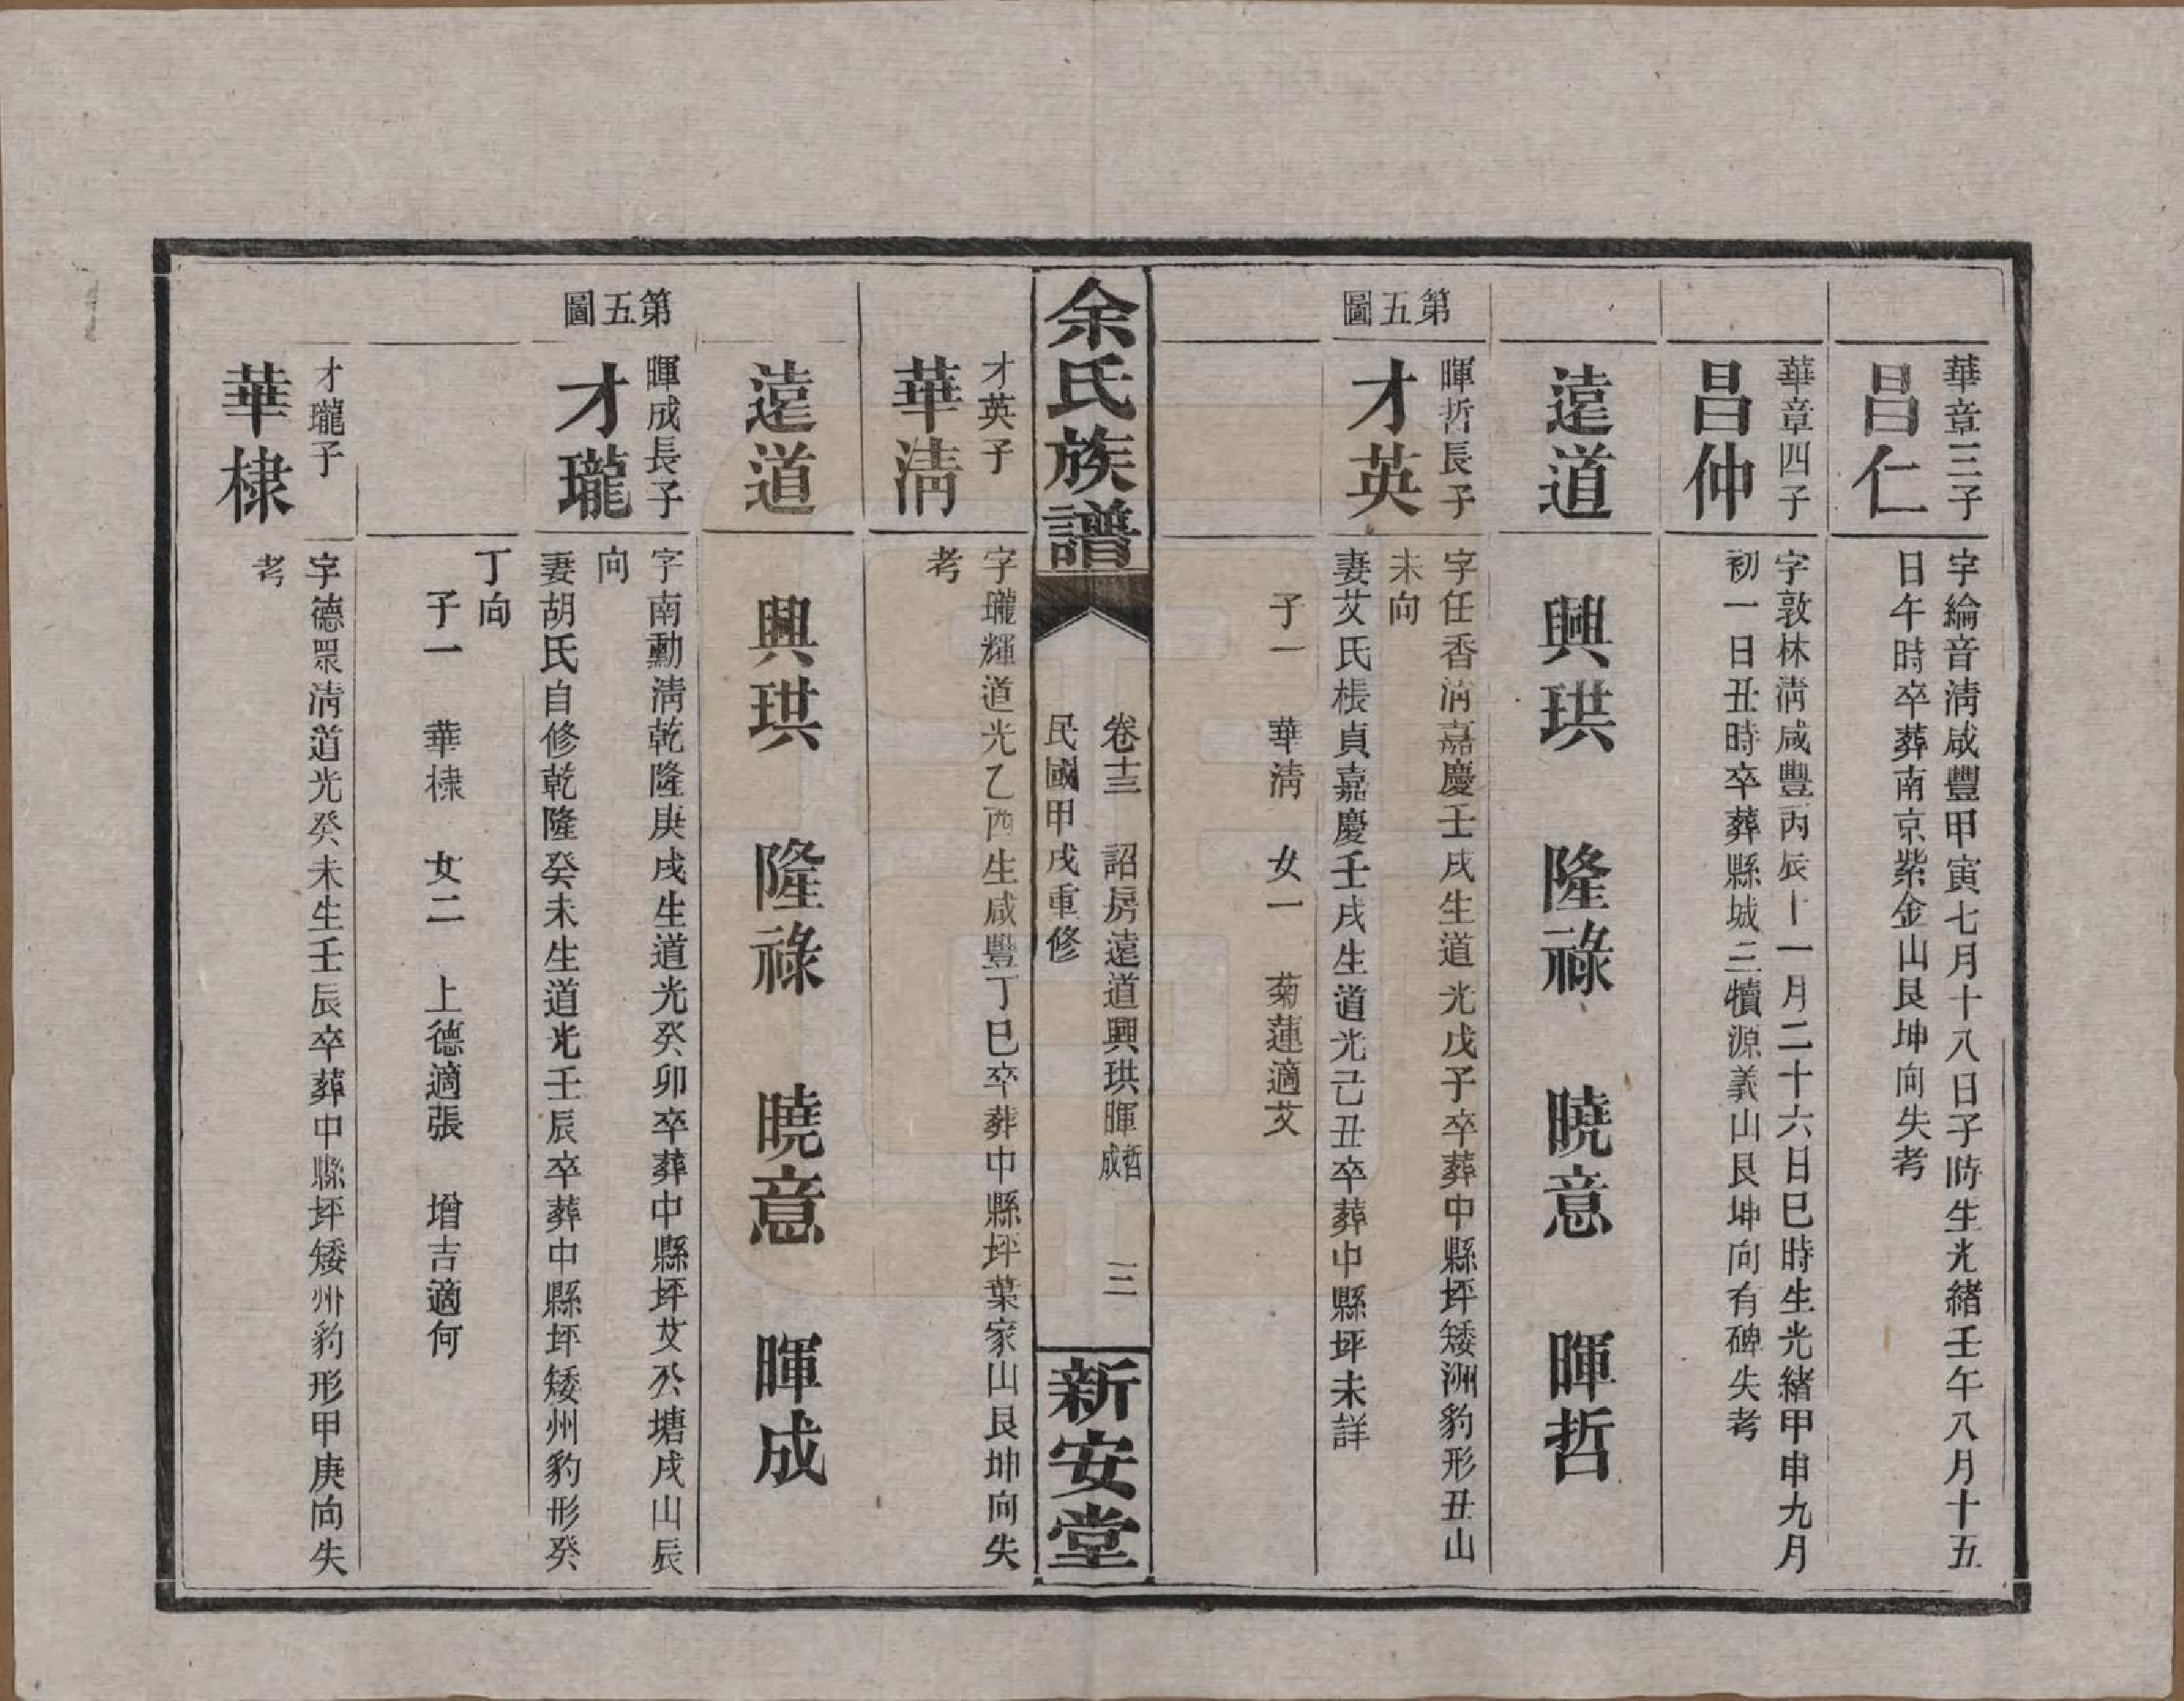 華章三子
昌仁
字綸音淸咸豐甲寅七月十八日子時生光緒壬午八月十五
日午時卒葬南京紫金山艮坤向失考
華章四子
昌仲
字敦林淸咸豐丙辰十一月二十六日巳時生光緒甲申九月
初一日丑時卒葬縣城三犢源義山艮坤向有碑失考
遠道　興珙　隆祿　曉意　暉哲
第五圖
暉哲長子
才英
字任香淸嘉慶壬戌生道光戊子卒葬中縣坪矮洲豹形丑山
未向
妻艾氏棖貞嘉慶壬戌生道光己丑卒葬中縣坪未詳
子一　華淸　女一　菊蓮適艾
余氏族譜
卷十三　詔房遠道興珙暉哲成　三
民國甲戌重修
新安堂
才英子
華淸
字瓏輝道光乙酉生咸豐丁巳卒葬中縣坪葉家山艮坤向失
考
遠道　興珙　隆祿　曉意　暉成
第五圖
暉成長子
才瓏
字南勳淸乾隆庚戌生道光癸卯卒葬中縣坪艾公塘戌山辰
向
妻胡氏自修乾隆癸未生道光壬辰卒葬中縣坪矮州豹形癸
丁向
子一　華棣　女二　上德適張　增吉適何
才瓏子
華棣
字德眾淸道光癸未生壬辰卒葬中縣坪矮州豹形甲庚向失
考